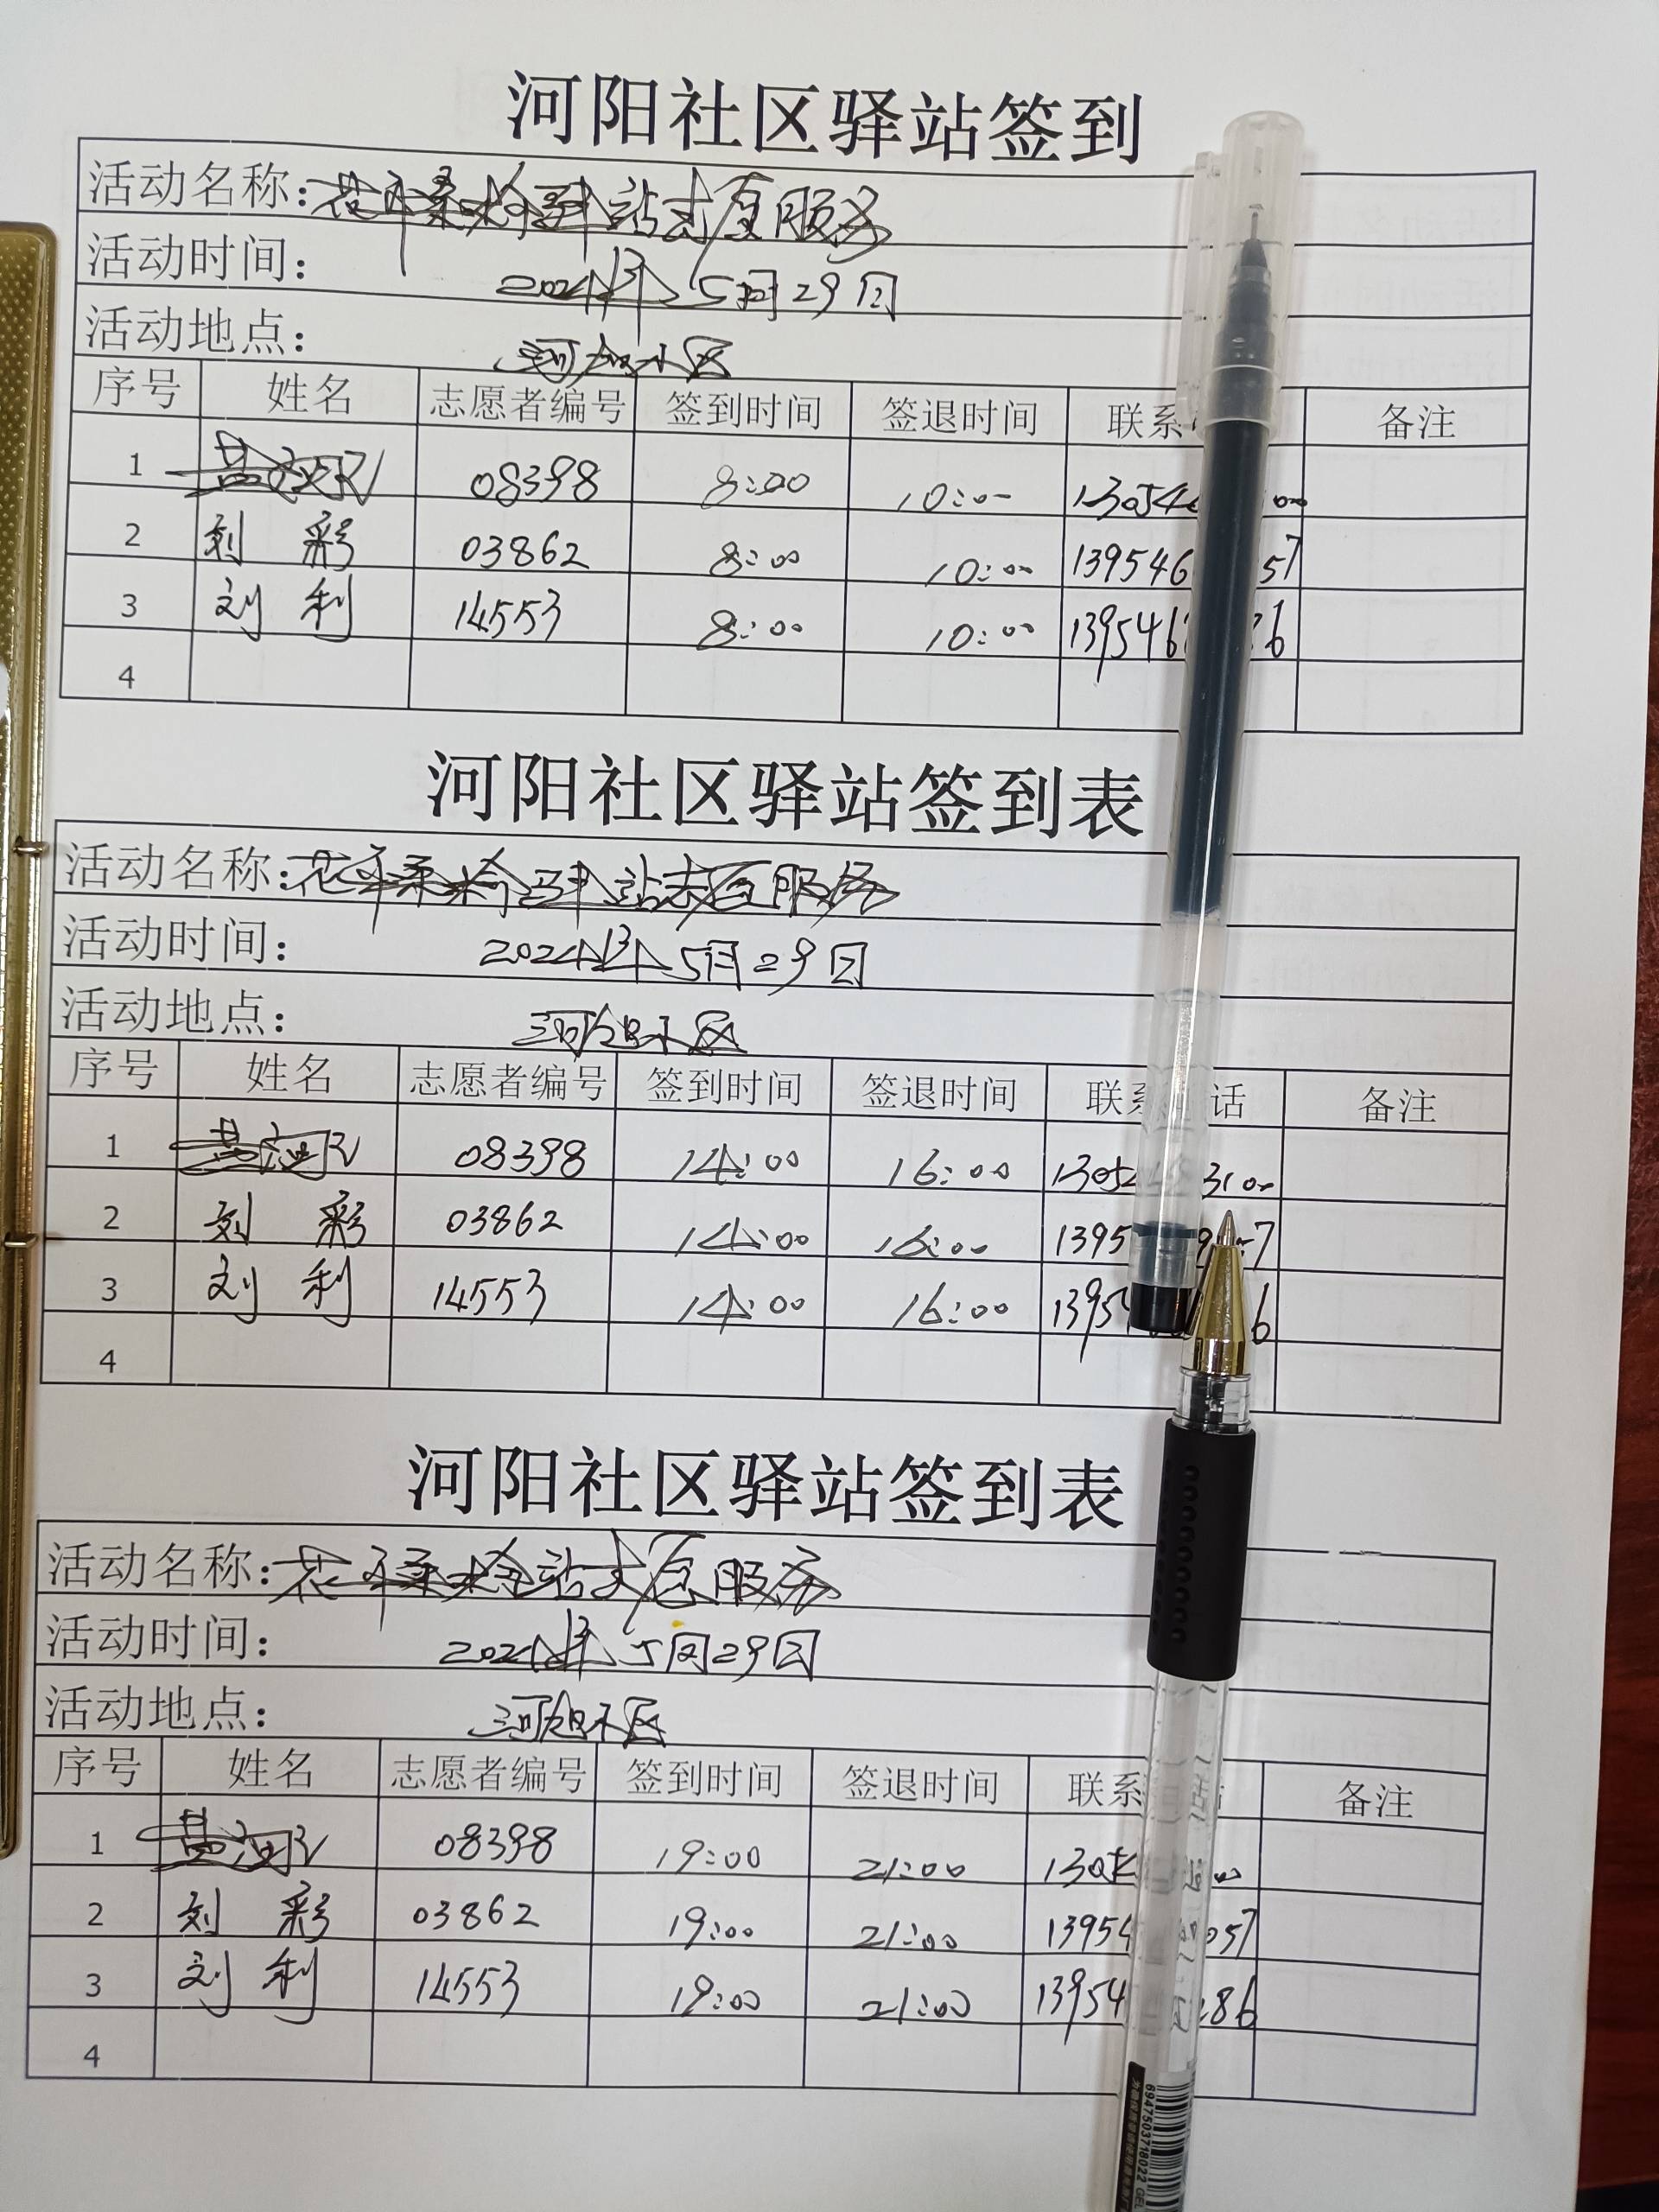 河阳社区驿站签到
活动名称: 站志愿服务
活动时间: 2024年5月29日
活动地点: 小区
序号 姓名 志愿者编号 签到时间 签退时间 联系 备注
1 08398 8:00 10:00
2 刘 彩 03862 8:00 10:00 139546 57
3 刘 利 14553 8:00 10:00 139546 6
4
河阳社区驿站签到表
活动名称: 站志愿服务
活动时间: 2024年5月29日
活动地点: 小区
序号 姓名 志愿者编号 签到时间 签退时间 联系 话 备注
1 08398 14:00 16:00
2 刘 彩 03862 14:00 16:00 1395 7
3 刘 利 14553 14:00 16:00 1395 6
4
河阳社区驿站签到表
活动名称: 站志愿服务
活动时间: 2024年5月29日
活动地点: 小区
序号 姓名 志愿者编号 签到时间 签退时间 联系 备注
1 08398 19:00 21:00
2 刘 彩 03862 19:00 21:00 13954 057
3 刘 利 14553 19:00 21:00 13954 86
4
6947503718022 GEL